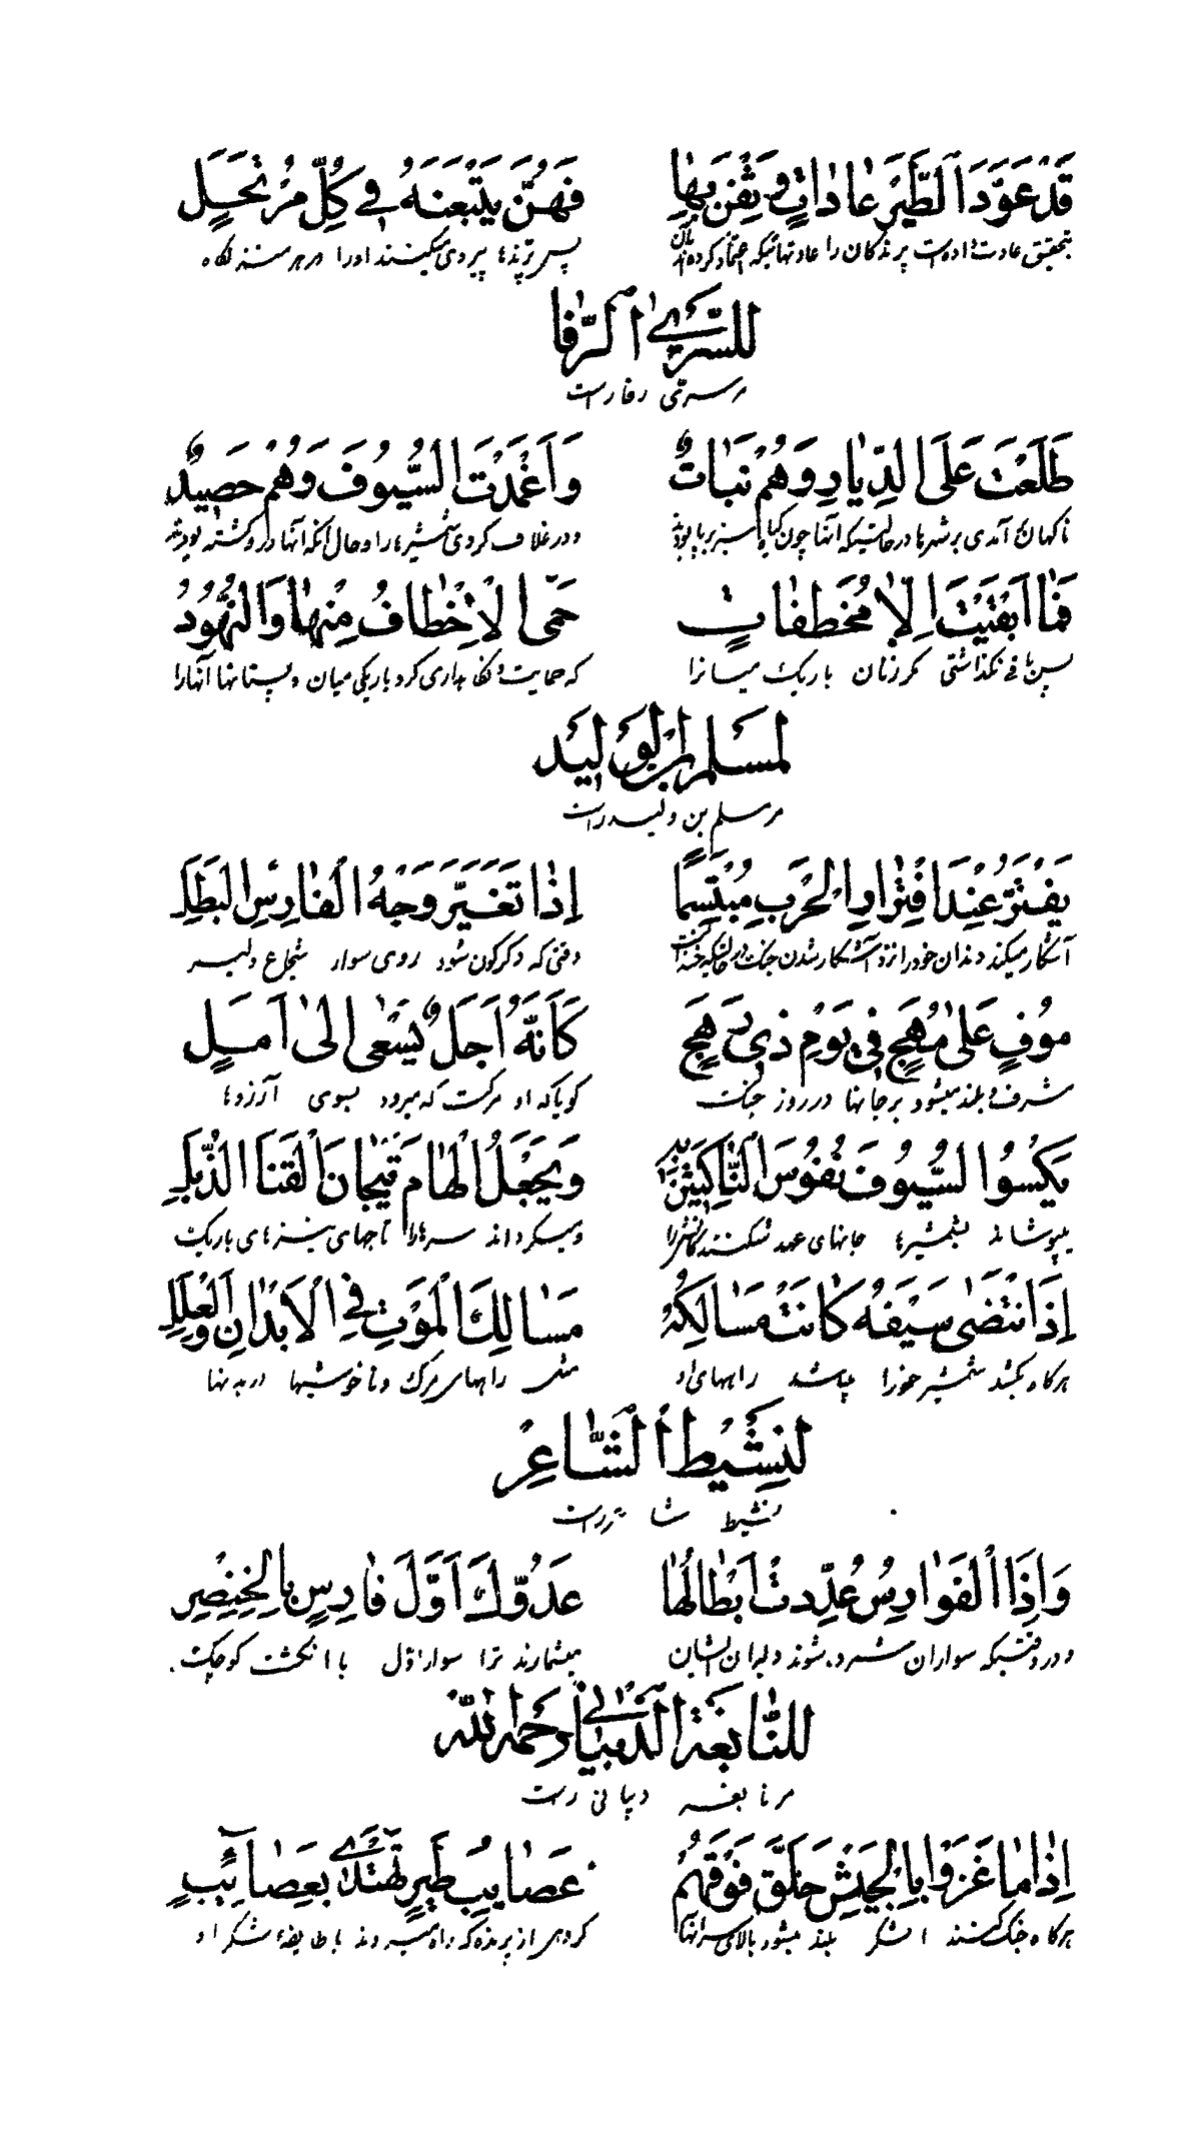 قَدْ عَوَّدَ الطَّيْرَ عَادَاتٍ وَثِقْنَ بِهَا فَهُنَّ يَتْبَعْنَهُ فِي كُلِّ مُرْتَحَلِ
بتحقیق عادت داده است پرندکان را عادتهائیکه اعتماد کرده‌اند بآن پس پرندها پیروی میکنند او را در هر منزلگاه
لِلسَّرِيِّ الرَّفَّا
مر سری رفا راست
طَلَعْتَ عَلَى الدِّيَارِ وَهُمْ نَبَاتٌ وَأَغْمَدْتَ السُّيُوفَ وَهُمْ حَصِيدُ
ناکهان آمدی بر شهرها در حالتیکه آنها چون کیاه سبز برپا بودند و در غلاف کردی شمشیرها را و حال آنکه آنها درو کشته بودند
فَمَا أَبْقَيْتَ إِلَّا مُخْطَفَاتٍ حَمَى الْإِخْطَافُ مِنْهَا وَالنُّهُودُ
پس باقی نکذاشتی مکر زنان باریک میانرا که حمایت و نکاهداری کرد باریکی میان و پستانها آنها را
لِمُسْلِمِ بْنِ الْوَلِيدِ
مر مسلم بن ولید راست
يَفْتَرُّ عِنْدَ افْتِرَارِ الْحَرْبِ مُبْتَسِمًا إِذَا تَغَيَّرَ وَجْهُ الْفَارِسِ الْبَطَلِ
آشکار میکند دندان خود را نزد آشکار شدن جنک در حالتیکه خندانست وقتی که دکرکون شود روی سوار شجاع دلیر
مُوفٍ عَلَى مُهَجٍ فِي يَوْمِ ذِي رَهَجٍ كَأَنَّهُ أَجَلٌ يَسْعَى إِلَى أَمَلِ
مشرف و بلند میشود بر جانها در روز جنک کویا که او مرکست که میرود بسوی آرزوها
يَكْسُو السُّيُوفَ نُفُوسَ النَّاكِثِينَ بِهِ وَيَجْعَلُ الْهَامَ تِيجَانَ الْقَنَا الذُّبُلِ
میپوشاند بشمشیرها جانهای عهد شکنندکانرا و میکرداند سرها را تاجهای نیزهای باریک
إِذَا انْتَضَى سَيْفَهُ كَانَتْ مَسَالِكُهُ مَسَالِكَ الْمَوْتِ فِي الْأَبْدَانِ وَالْعِلَلِ
هرکاه بکشد شمشیر خود را میباشد راههای او مثل راههای مرک و ناخوشیها در بدنها
لِنَشِيطٍ الشَّاعِرِ
نشیط شاعر راست
وَإِذَا الْفَوَارِسُ عُدِّدَتْ أَبْطَالُهَا عَدُّوكَ أَوَّلَ فَارِسٍ بِالْخِنْصِرِ
و در وقتیکه سواران شمرده شوند دلیران ایشان میشمارند ترا سوار اول با انکشت کوچک.
لِلنَّابِغَةِ الذُّبْيَانِي رَحِمَهُ اللّٰهُ
مر نابغه ذبیانی راست
إِذَا مَا غَزَوْا بِالْجَيْشِ حَلَّقَ فَوْقَهُمْ عَصَائِبُ طَيْرٍ تَهْتَدِي بِعَصَائِبِ
هرکاه جنک کنند با لشکر بلند میشود بالای سر آنها کروهی از پرنده که راه میروند با طایفه لشکر او